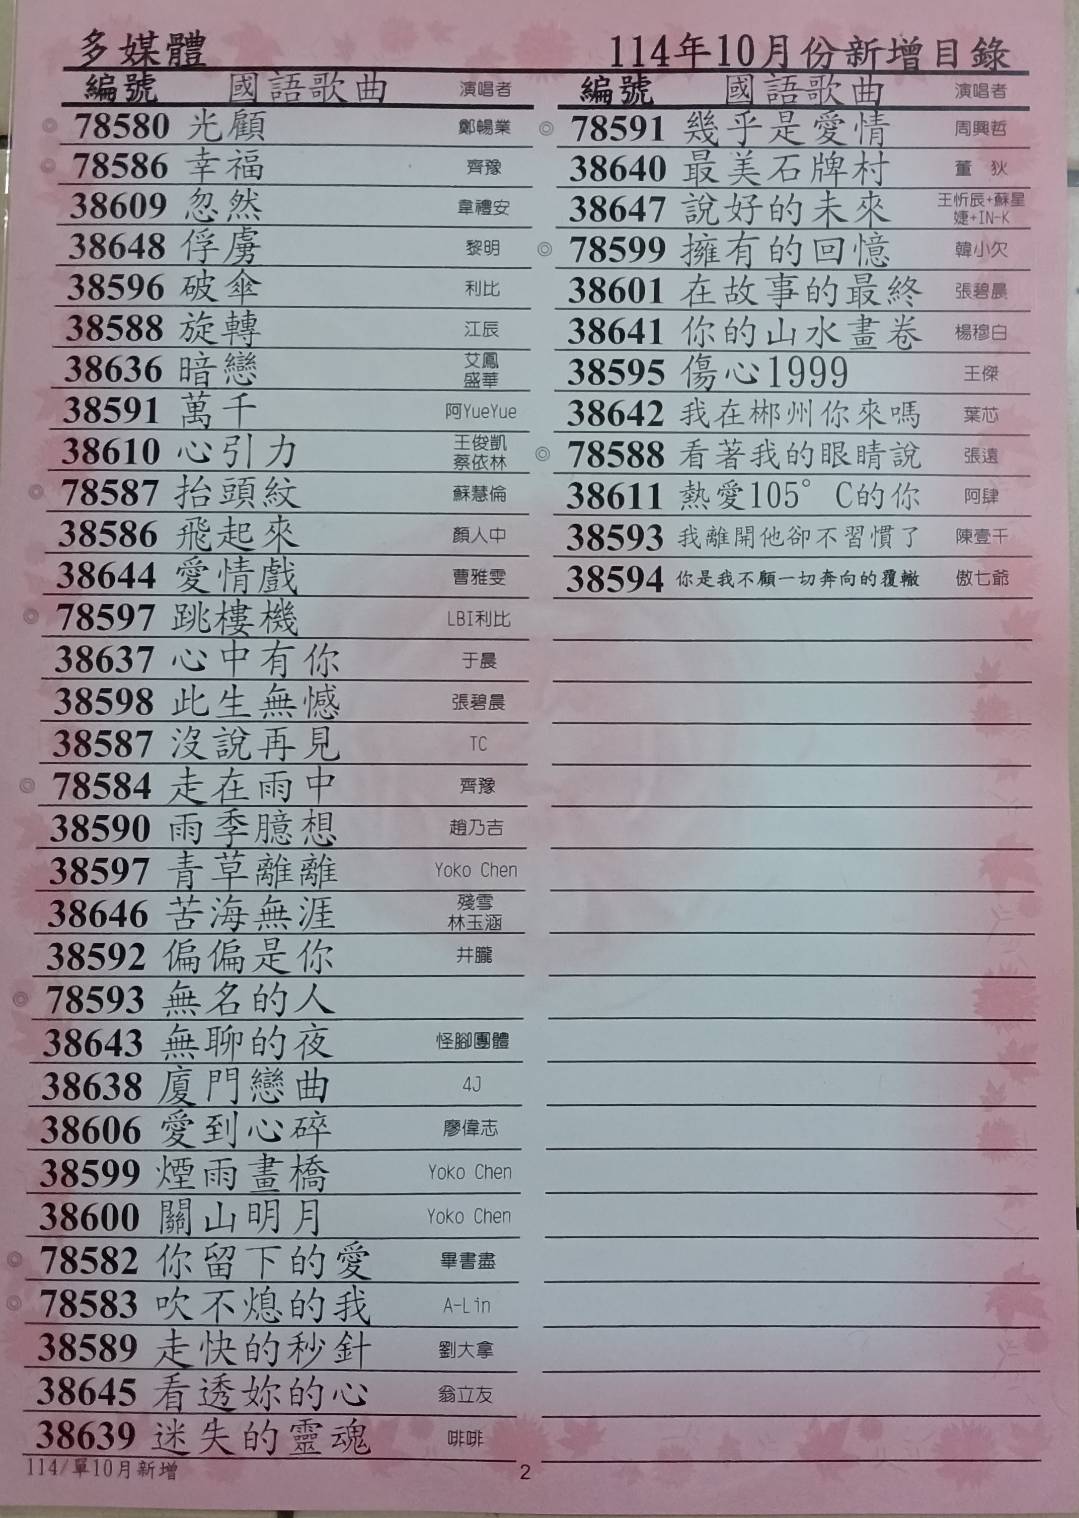 多媒體 114年10月份新增目錄
編號 國語歌曲 演唱者
◎ 78580 光顧 鄭暢業
◎ 78586 幸福 齊豫
38609 忽然 韋禮安
38648 俘虜 黎明
38596 破傘 利比
38588 旋轉 江辰
38636 暗戀 艾鳳
盛華
38591 萬千 阿YueYue
38610 心引力 王俊凱
蔡依林
◎ 78587 抬頭紋 蘇慧倫
38586 飛起來 顏人中
38644 愛情戲 曹雅雯
◎ 78597 跳樓機 LBI利比
38637 心中有你 于晨
38598 此生無憾 張碧晨
38587 沒說再見 TC
◎ 78584 走在雨中 齊豫
38590 雨季臆想 趙乃吉
38597 青草離離 Yoko Chen
38646 苦海無涯 殘雪
林玉涵
38592 偏偏是你 井朧
◎ 78593 無名的人
38643 無聊的夜 怪腳團體
38638 廈門戀曲 4J
38606 愛到心碎 廖偉志
38599 煙雨畫橋 Yoko Chen
38600 關山明月 Yoko Chen
◎ 78582 你留下的愛 畢書盡
◎ 78583 吹不熄的我 A-Lin
38589 走快的秒針 劉大拿
38645 看透妳的心 翁立友
38639 迷失的靈魂 啡啡
編號 國語歌曲 演唱者
◎ 78591 幾乎是愛情 周興哲
38640 最美石牌村 董 狄
38647 說好的未來 王忻辰+蘇星
婕+IN-K
◎ 78599 擁有的回憶 韓小欠
38601 在故事的最終 張碧晨
38641 你的山水畫卷 楊穆白
38595 傷心1999 王傑
38642 我在郴州你來嗎 葉芯
◎ 78588 看著我的眼睛說 張遠
38611 熱愛105°C的你 阿肆
38593 我離開他卻不習慣了 陳壹千
38594 你是我不顧一切奔向的覆轍 傲七爺
114/單10月新增
2